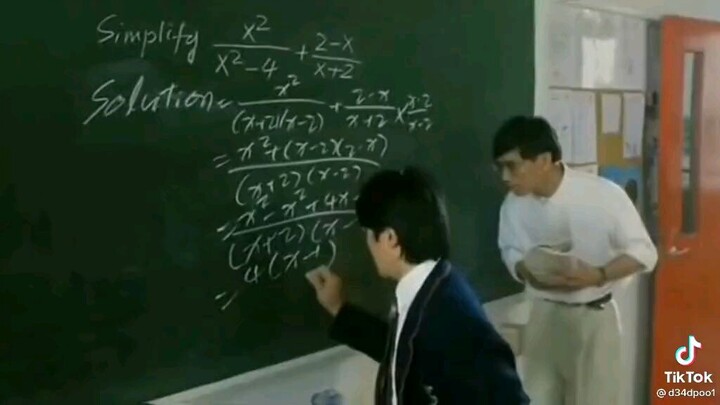 Simplify x²/(x²-4) + (2-x)/(x+2)
Solution = x²/((x+2)(x-2)) + (2-x)/(x+2) × (x-2)/(x-2)
= (x²+(x-2)(2-x))/((x+2)(x-2))
= (x²-x²+4x)/((x+2)(x-
= 4(x-1)
TikTok
@d34dpoo1